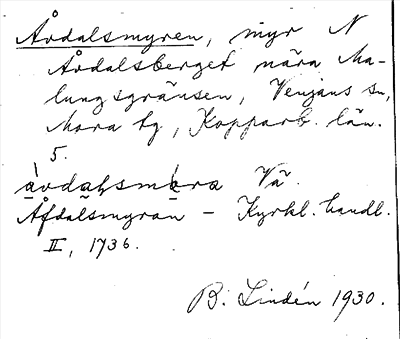 Åvdalsmyren, myr N
Åvdalsberget nära Ma-
lungsgränsen, Venjans sn,
Mora tg, Kopparb. län.
5.
åvdalsmöra Vä.
Åfdalsmyran - Kyrkl. handl.
II, 1736.
B. Lindén 1930.